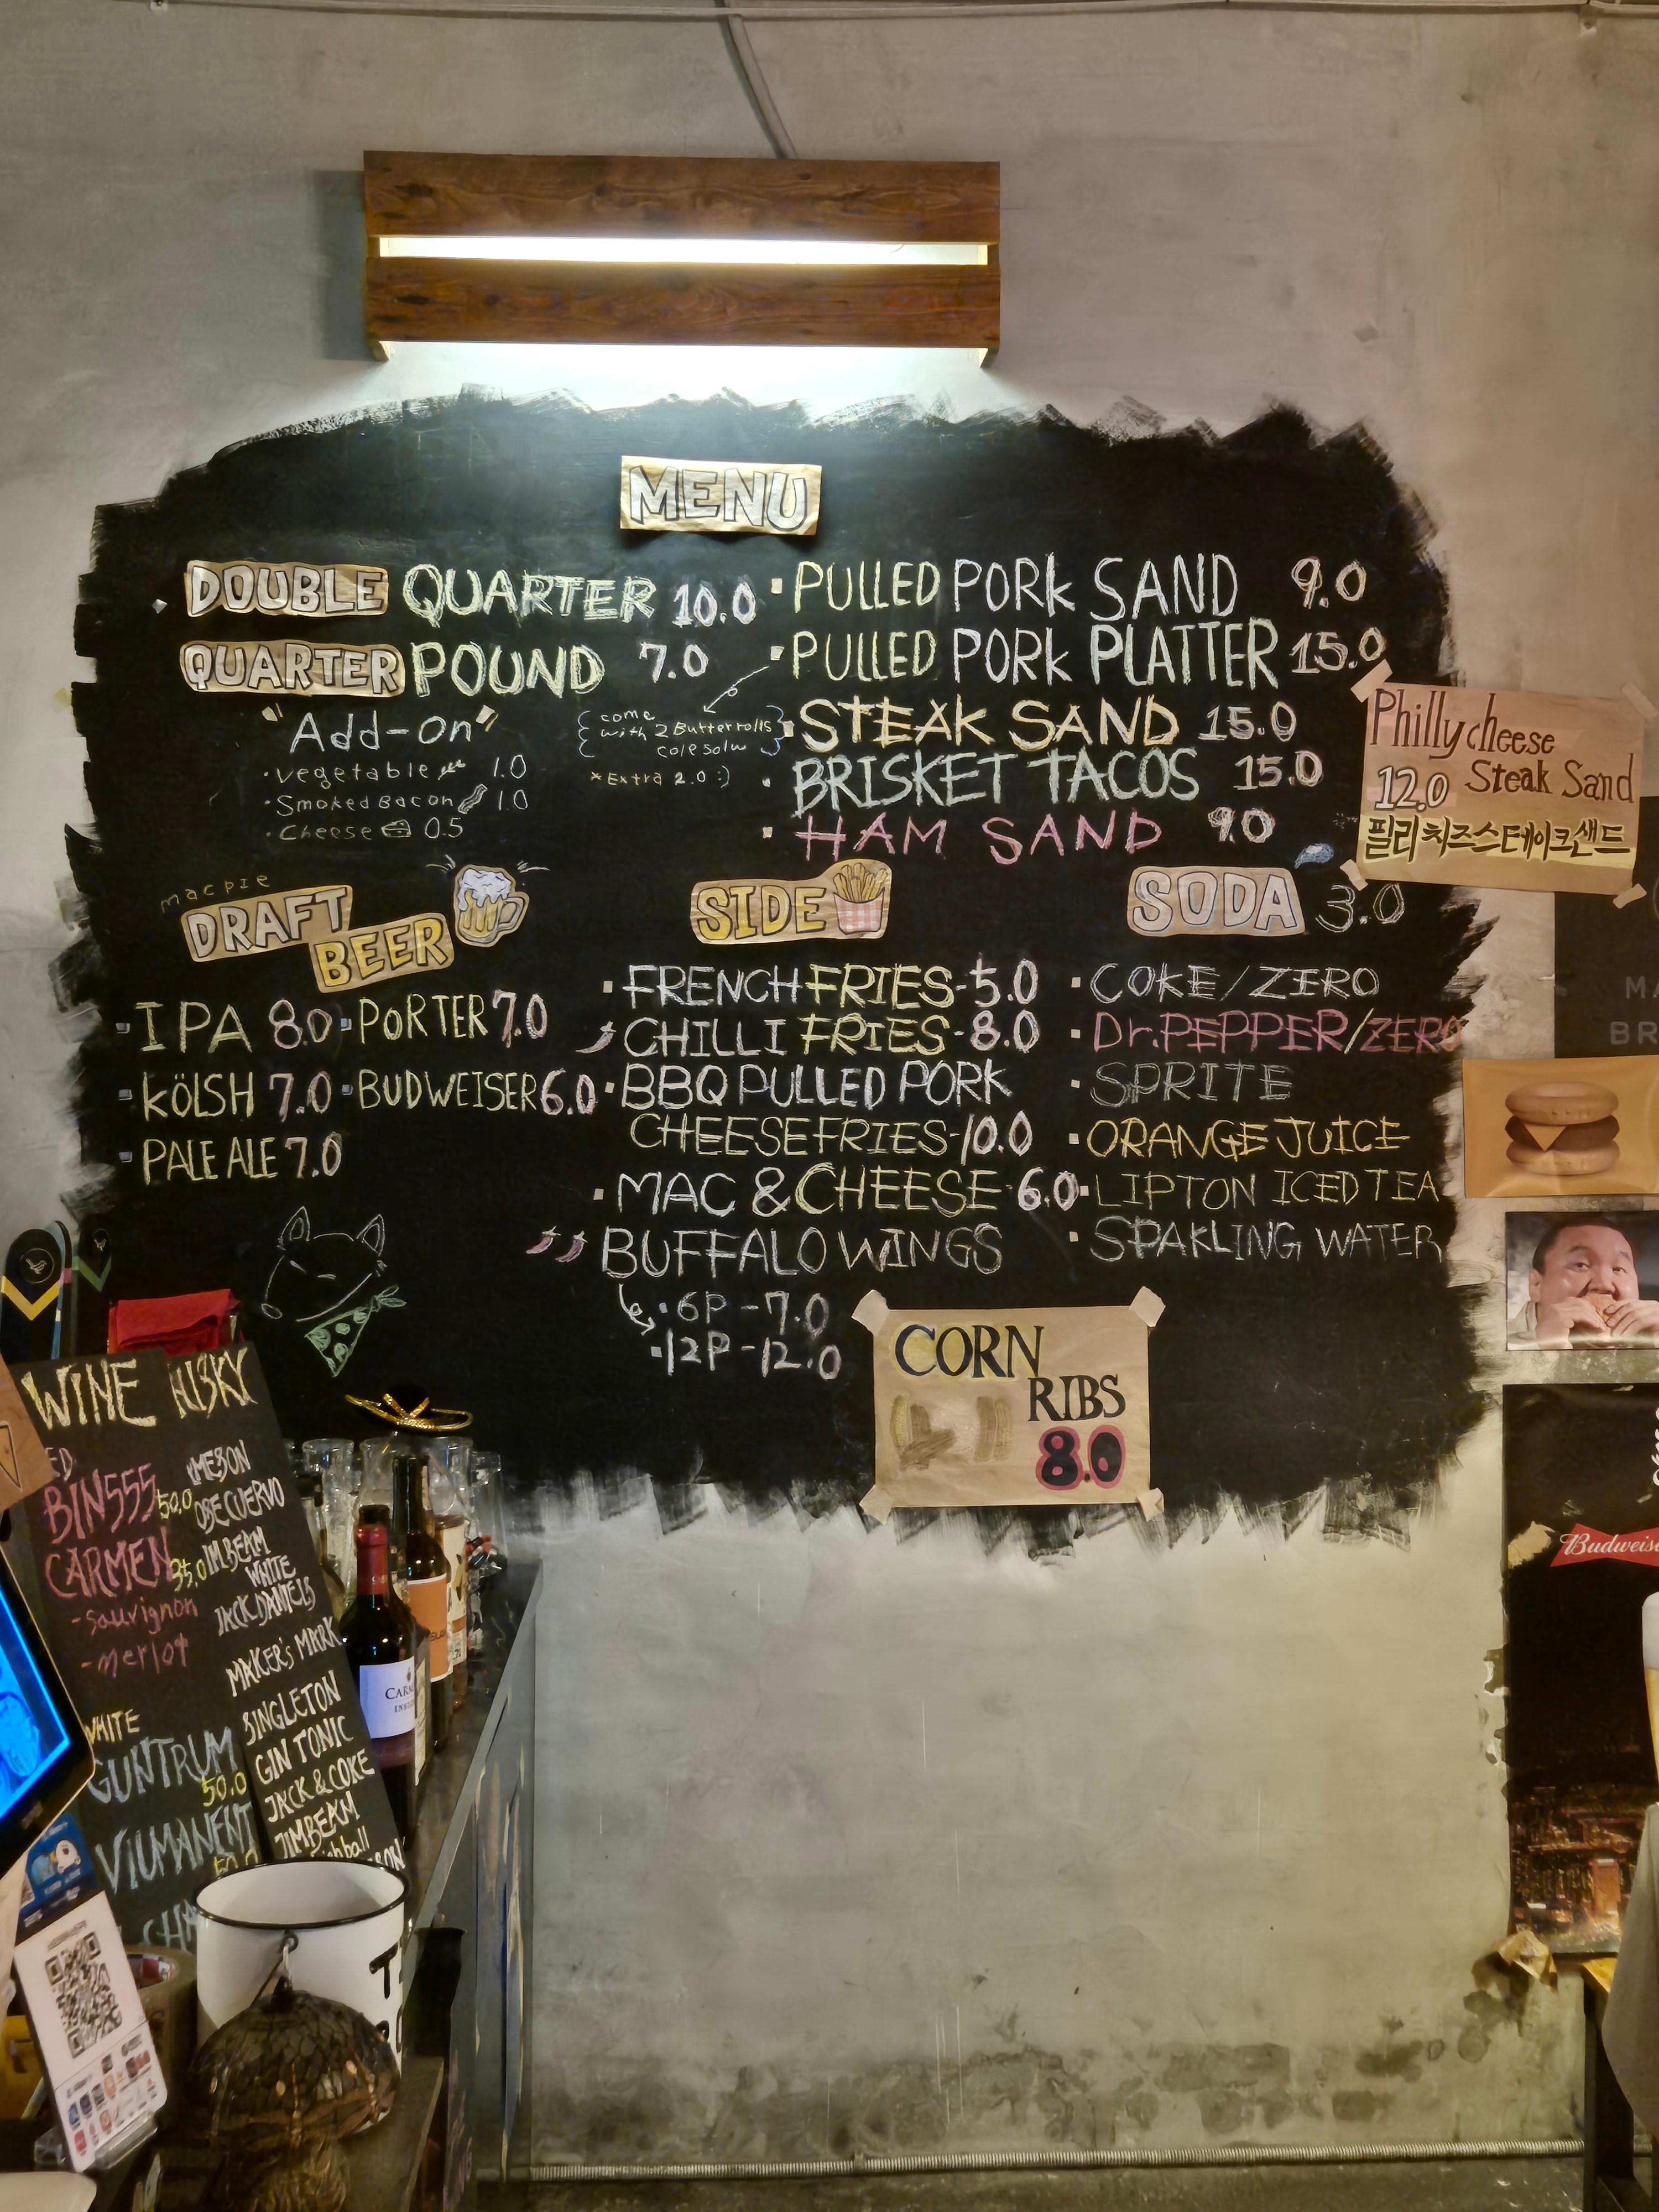 MENU
DOUBLE QUARTER 10.0
QUARTER POUND 7.0
"Add-on"
· vegetable 1.0
· Smoked Bacon 1.0
· Cheese 0.5
· PULLED PORK SAND 9.0
· PULLED PORK PLATTER 15.0
come
with 2 Butter rolls
cole solw
* Extra 2.0 :)
· STEAK SAND 15.0
· BRISKET TACOS 15.0
· HAM SAND 9.0
Philly cheese
12.0 Steak Sand
필리치즈스테이크샌드
macpie
DRAFT
BEER
· IPA 8.0 · PORTER 7.0
· KÖLSH 7.0 · BUDWEISER 6.0
· PALE ALE 7.0
SIDE
· FRENCH FRIES - 5.0
CHILLI FRIES - 8.0
· BBQ PULLED PORK
CHEESE FRIES - 10.0
· MAC & CHEESE 6.0
BUFFALO WINGS
· 6P - 7.0
· 12P - 12.0
SODA 3.0
· COKE/ZERO
· Dr.PEPPER/ZERO
· SPRITE
· ORANGE JUICE
· LIPTON ICED TEA
· SPAKLING WATER
CORN
RIBS
8.0
WINE
ED
BIN555
50.0
CARMEN
35.0
-sauvignon
-merlot
WHITE
GUNTRUM
50.0
VIUMANENT
50.0
HISKY
MESON
OSE CUERVO
IM BEAM
WHITE
JACK DANIELS
MAKER's MARK
SINGLETON
GIN TONIC
JACK & COKE
JIMBEAM
Budweise